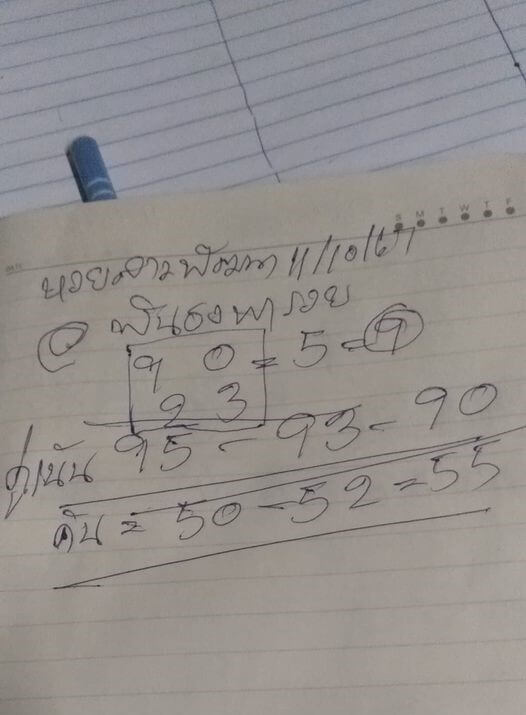 S M T W T F
หวยลาวพัฒนา 11/10/67
@ ฟันธงพารวย
9 0 = 5 - 9
2 3
คู่เน้น 95 - 93 - 90
คัน = 50 - 52 = 55